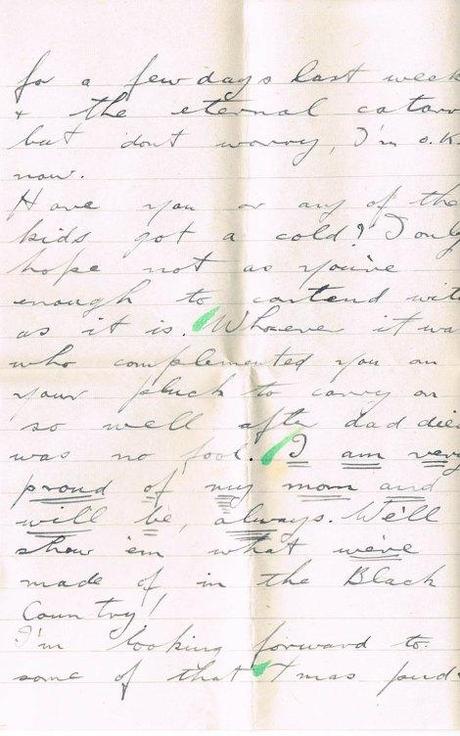 for a few days last week
& the eternal catarr
but don't worry, I'm O.K.
now.
Have you or any of the
kids got a cold? I only
hope not as you've
enough to contend with
as it is. Whoever it was
who complemented you on
your pluck to carry on
so well after dad died
was no fool. I am very
proud of my mom and
will be, always. We'll
show 'em what we've
made of, in the Black
Country!
I'm looking forward to
some of that Xmas pud